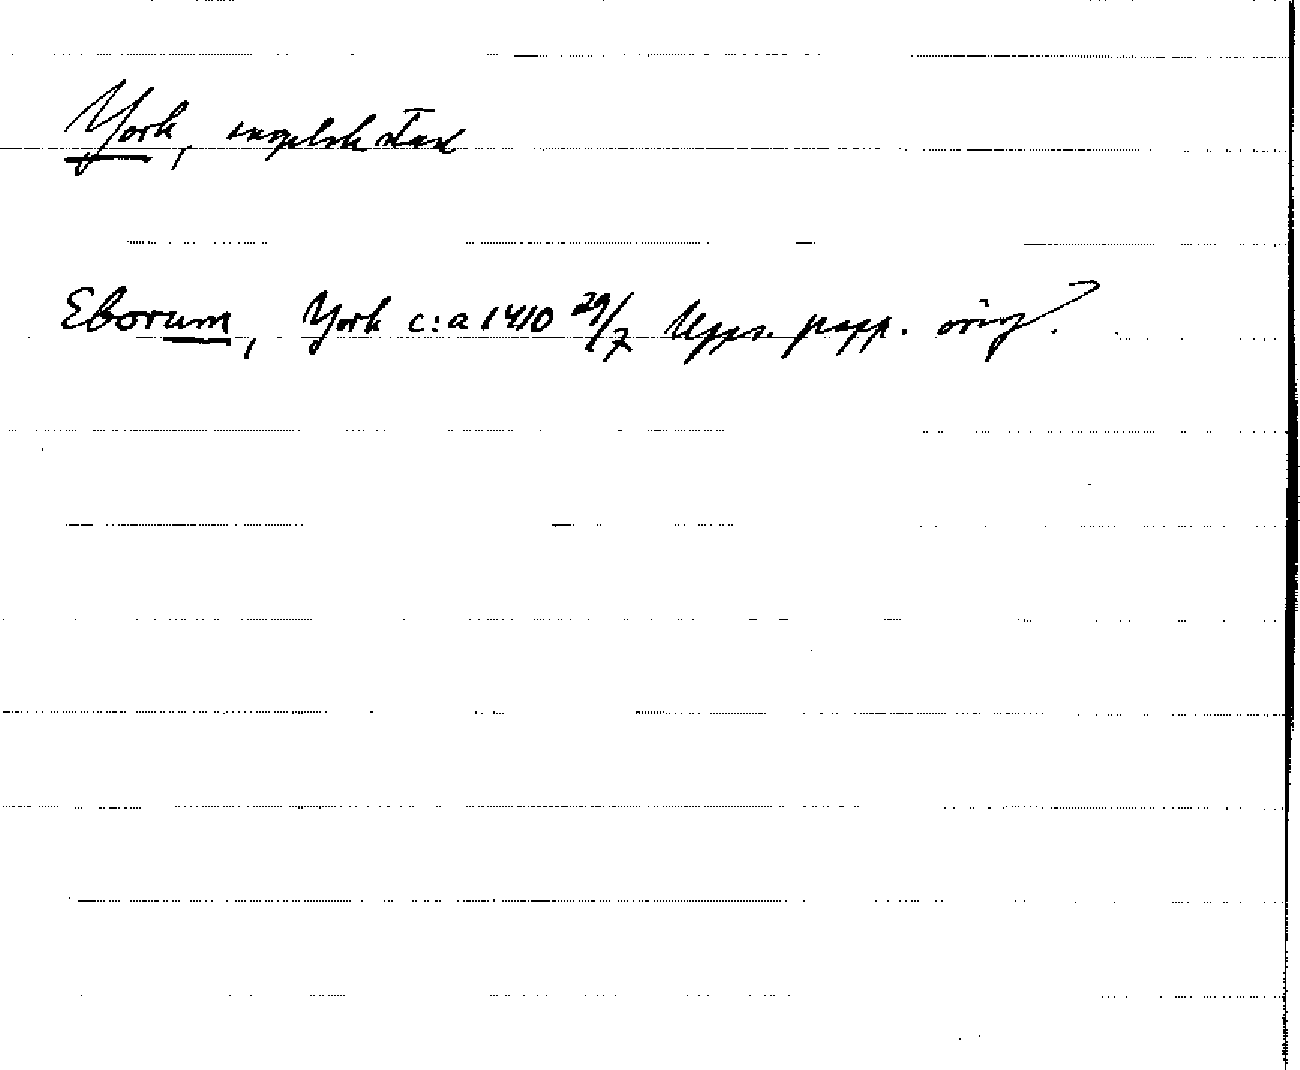 York, engelsk stad
Eborum, York c:a 1410 29/7 Upps. papp. orig?